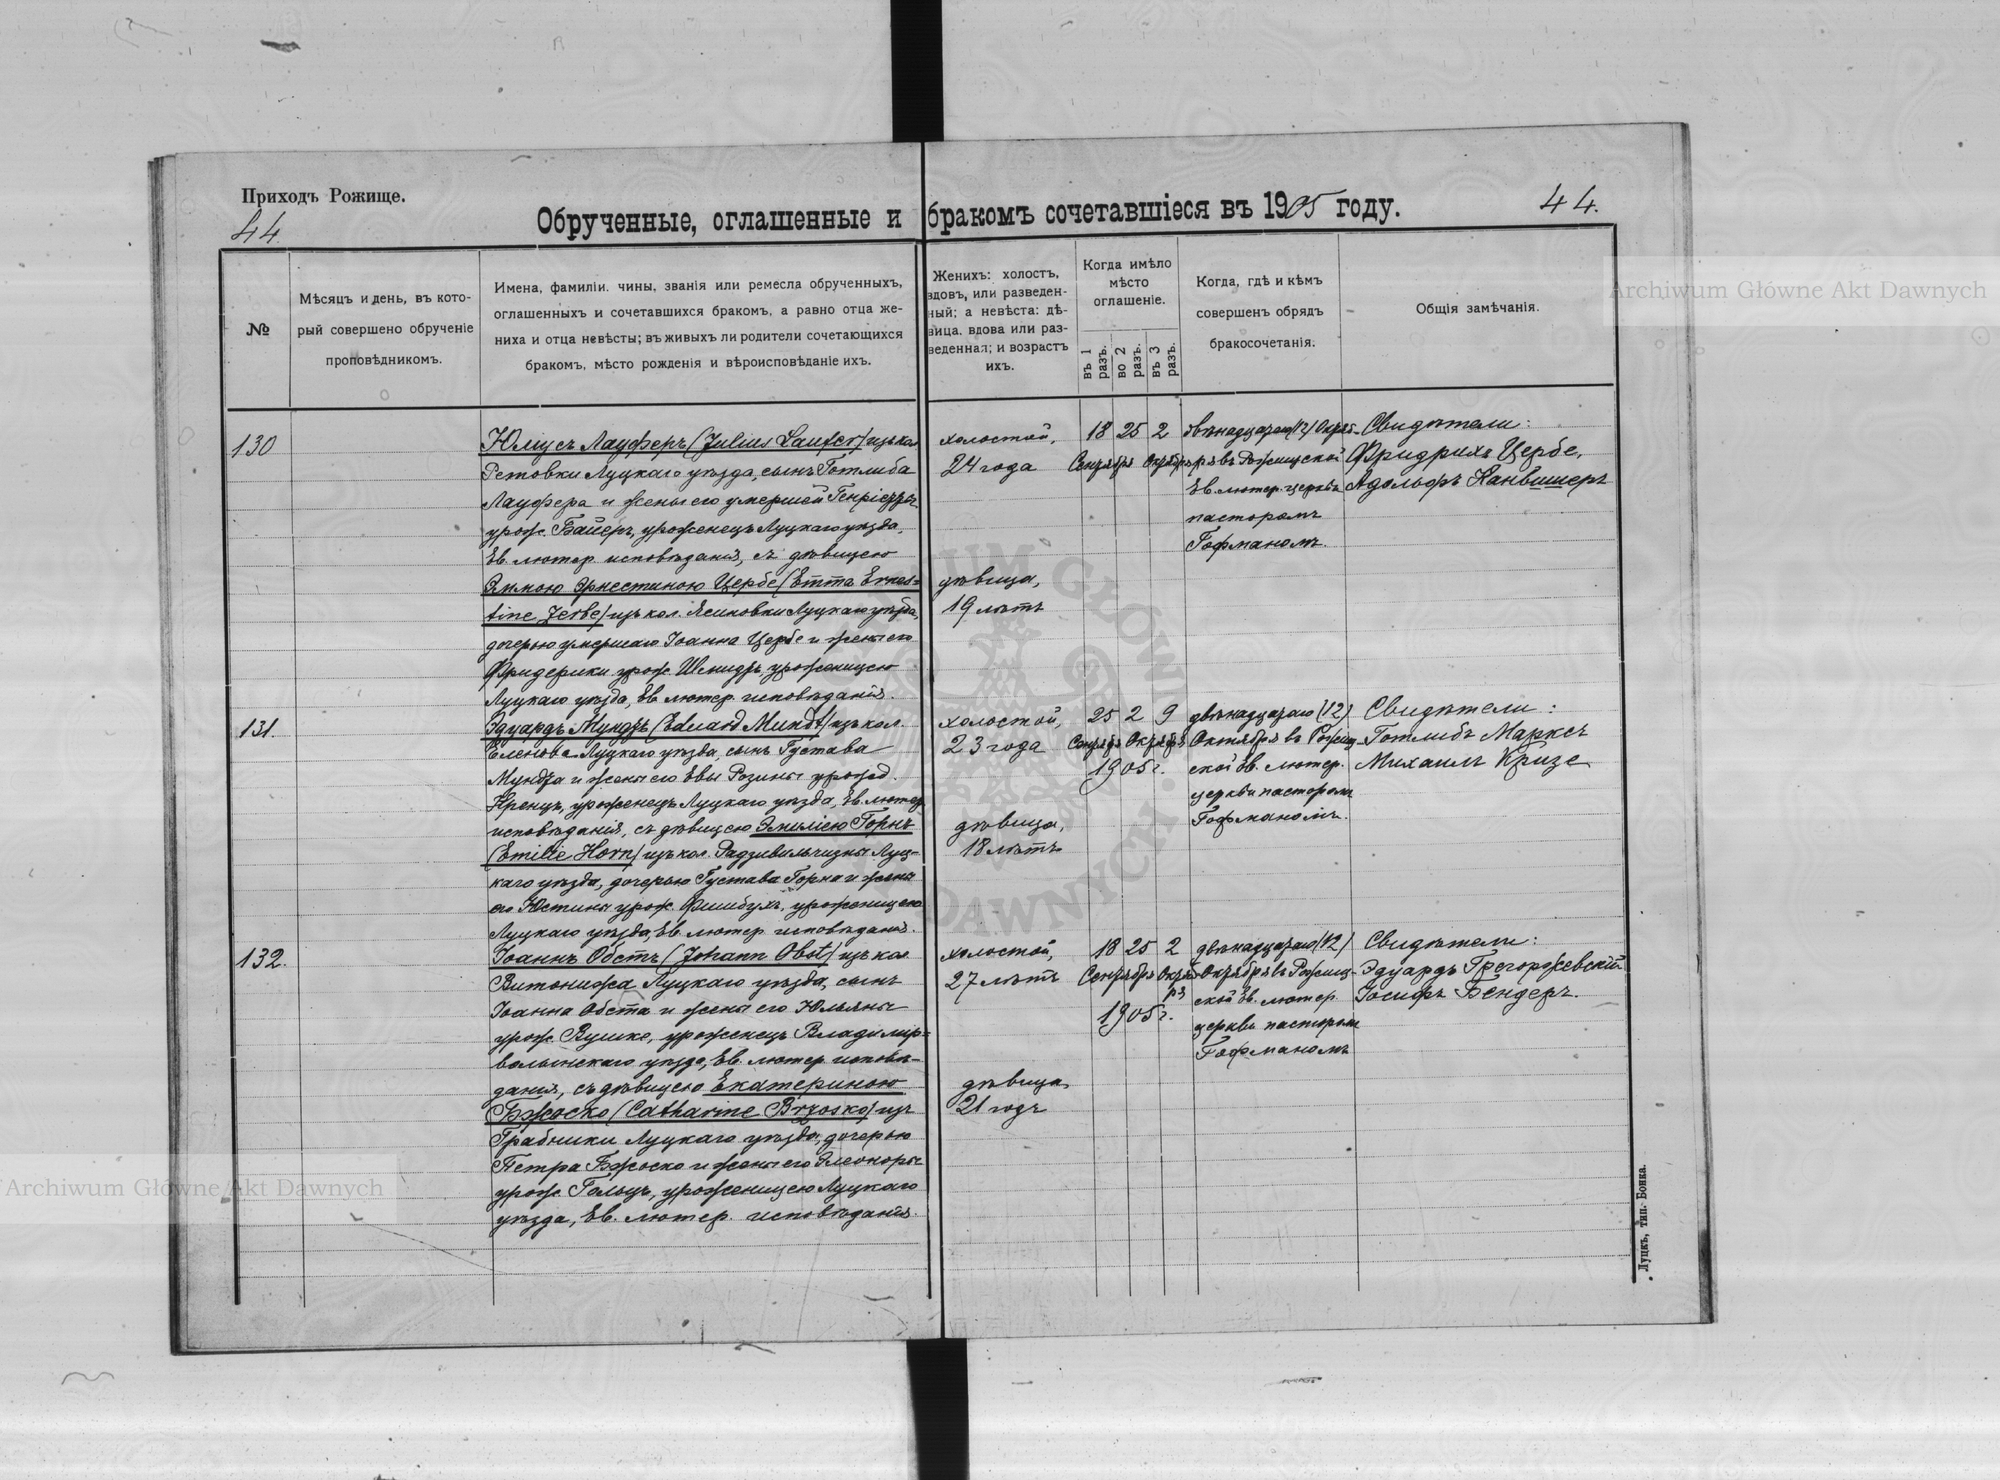 Приходъ Рожище.
44.
Обрученные, оглашенные и бракомъ сочетавшіеся въ 1905 году.
44.
№
Мѣсяцъ и день, въ кото-
рый совершено обрученіе
проповѣдникомъ.
Имена, фамиліи. чины, званія или ремесла обрученныхъ,
оглашенныхъ и сочетавшихся бракомъ, а равно отца же-
ниха и отца невѣсты; въ живыхъ ли родители сочетающихся
бракомъ, мѣсто рожденія и вѣроисповѣданіе ихъ.
Женихъ: холостъ,
вдовъ, или разведен-
ный; а невѣста: дѣ-
вица, вдова или раз-
веденная; и возрастъ
ихъ.
Когда имѣло
мѣсто
оглашеніе.
въ 1 разъ.
во 2 разъ.
въ 3 разъ.
Когда, гдѣ и кѣмъ
совершенъ обрядъ
бракосочетанія.
Общія замѣчанія.
130
Юліусъ Лауферъ (Julius Laufer) изъ кол.
Ретовки Луцкаго уѣзда, сынъ Готлиба
Лауфера и жены его умершей Генріетты
урож. Байеръ, уроженецъ Луцкаго уѣзда,
Ев. лютер. исповѣданія, съ дѣвицею
Эммою Эрнестиною Цербе (Emma Ernes-
tine Zerbe) изъ кол. Ясиновки Луцкаго уѣзда,
дочерью умершаго Іоанна Цербе и жены его
Фридерики урож. Шмидтъ, уроженицею
Луцкаго уѣзда, Ев. лютер. исповѣданія.
холостой,
24 года
дѣвица,
19 лѣтъ
18 25 2
Сентября Октября
двѣнадцатаго (12) Октяб-
ря въ Рожищской
Ев. лютер. церкви
пасторомъ
Гофманомъ.
Свидѣтели:
Фридрихъ Цербе,
Адольфъ Канвишеръ
131.
Эдуардъ Мундтъ (Eduard Mundt) изъ кол.
Еленова Луцкаго уѣзда, сынъ Густава
Мундта и жены его Евы Розины урожд.
Кренцъ, уроженецъ Луцкаго уѣзда, Ев. лютер.
исповѣданія, съ дѣвицею Эмиліею Горнъ
(Emilie Horn) изъ кол. Радзивильчизны Луц-
каго уѣзда, дочерью Густава Горна и жены
его Юстины урож. Фишбухъ, уроженицею
Луцкаго уѣзда, Ев. лютер. исповѣданія.
холостой,
23 года
дѣвица,
18 лѣтъ
25 2 9
Сентября Октября
1905 г.
двѣнадцатаго (12)
Октября въ Рожищ-
ской Ев. лютер.
церкви пасторомъ
Гофманомъ.
Свидѣтели:
Готлибъ Марксъ
Михаилъ Кризе
132.
Іоаннъ Обстъ (Johann Obst) изъ кол.
Витонижа Луцкаго уѣзда, сынъ
Іоанна Обста и жены его Юльяны
урож. Вушке, уроженецъ Владимір-
волынскаго уѣзда, Ев. лютер. исповѣ-
данія, съ дѣвицею Екатериною
Бжоско (Catharine Brzosko) изъ
Грабники Луцкаго уѣзда, дочерью
Петра Бжоско и жены его Элеоноры
урож. Гольцъ, уроженицею Луцкаго
уѣзда, Ев. лютер. исповѣданія.
холостой,
27 лѣтъ
дѣвица
21 годъ
18 25 2
Сентября Октября
1905 г.
двѣнадцатаго (12)
Октября въ Рожищ-
ской Ев. лютер.
церкви пасторомъ
Гофманомъ
Свидѣтели:
Эдуардъ Грегоржевскій
Іосифъ Бендеръ.
Луцкъ, тип. Бонка.
Archiwum Główne Akt Dawnych
Archiwum Główne Akt Dawnych